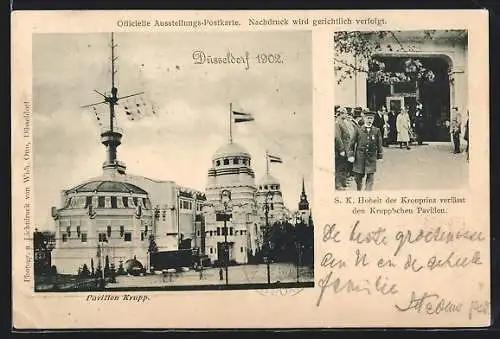 Officielle Ausstellungs-Postkarte. Nachdruck wird gerichtlich verfolgt.
Düsseldorf 1902.
Photogr. u. Lichtdruck von Wilh. Otto, Düsseldorf.
Pavillon Krupp.
S. K. Hoheit der Kronprinz verlässt
den Krupp'schen Pavillon.
De beste groetenisse
aan U en de geheele
familie